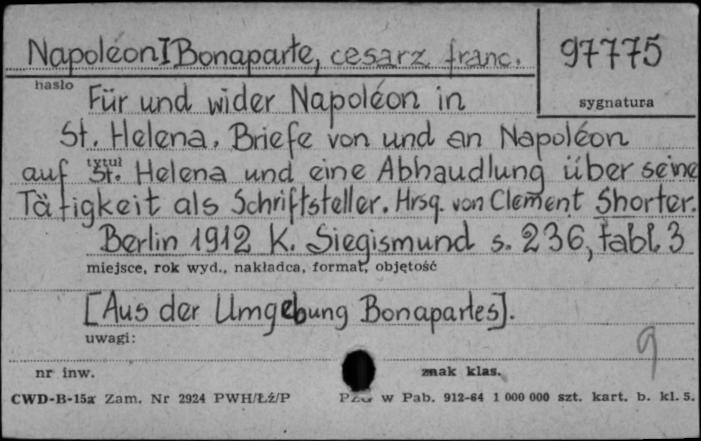 Napoléon I Bonaparte, cesarz franc. 97775
hasło
sygnatura
Für und wider Napoléon in
St. Helena. Briefe von und an Napoléon
tytuł
auf St. Helena und eine Abhaudlung über seine
Tätigkeit als Schriftsteller. Hrsg. von Clement Shorter.
Berlin 1912 K. Siegismund s. 236, tabl. 3
miejsce, rok wyd., nakładca, format, objętość
[Aus der Umgebung Bonapartes].
uwagi:
9
nr inw. znak klas.
CWD-B-15a Zam. Nr 2924 PWH/Łż/P w Pab. 912-64 1 000 000 szt. kart. b. kl. 5.